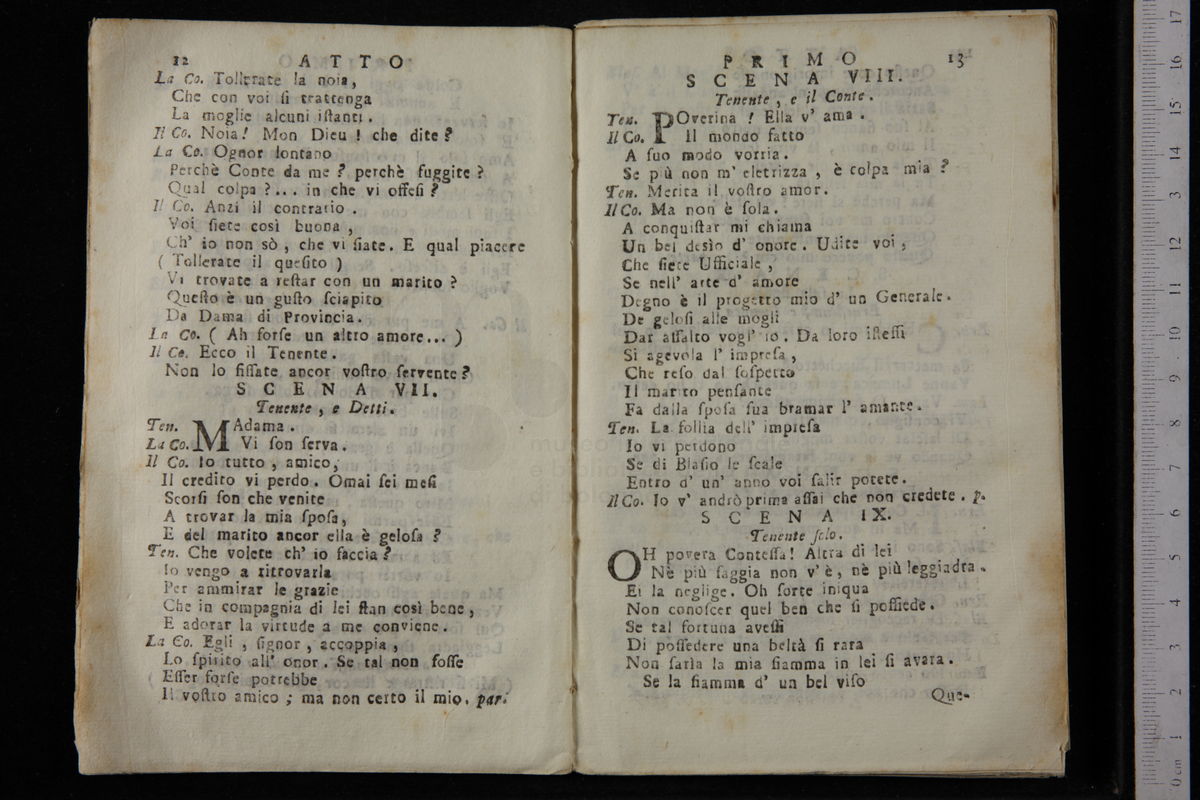 12 ATTO
La Co. Tollerate la noia,
Che con voi ſi trattenga
La moglie alcuni iſtanti.
Il Co. Noia! Mon Dieu! che dite?
La Co. Ognor lontano
Perchè Conte da me? perchè fuggite?
Qual colpa?... in che vi offeſi?
Il Co. Anzi il contrario.
Voi ſiete così buona,
Ch' io non sò, che vi ſiate. E qual piacere
(Tollerate il queſito)
Vi trovate a reſtar con un marito?
Queſto è un guſto ſciapito
Da Dama di Provincia.
La Co. (Ah forſe un altro amore...)
Il Co. Ecco il Tenente.
Non lo fiſſate ancor voſtro ſervente?
SCENA VII.
Tenente, e Detti.
Ten. MAdama.
La Co. Vi ſon ſerva.
Il Co. Io tutto, amico,
Il credito vi perdo. Omai ſei meſi
Scorſi ſon che venite
A trovar la mia ſpoſa,
E del marito ancor ella è geloſa?
Ten. Che volete ch' io faccia?
Io vengo a ritrovarla
Per ammirar le grazie
Che in compagnia di lei ſtan così bene,
E adorar la virtude a me conviene.
La Co. Egli, ſignor, accoppia,
Lo ſpirito all' onor. Se tal non foſſe
Eſſer forſe potrebbe
Il voſtro amico; ma non certo il mio. par.
PRIMO 13
SCENA VIII.
Tenente, e il Conte.
Ten. POverina! Ella v' ama.
Il Co. Il mondo fatto
A ſuo modo vorria.
Se più non m' eletrizza, è colpa mia?
Ten. Merita il voſtro amor.
Il Co. Ma non è ſola.
A conquiſtar mi chiama
Un bel desìo d' onore. Udite voi,
Che ſiete Ufficiale,
Se nell' arte d' amore
Degno è il progetto mio d' un Generale.
De geloſi alle mogli
Dar aſſalto vogl' io. Da loro iſteſſi
Si agevola l' impreſa,
Che reſo dal ſoſpetto
Il marito penſante
Fa dalla ſpoſa ſua bramar l' amante.
Ten. La follia dell' impreſa
Io vi perdono
Se di Blaſio le ſcale
Entro d' un' anno voi ſalir potete.
Il Co. Io v' andrò prima aſſai che non credete. p.
SCENA IX.
Tenente ſolo.
OH povera Conteſſa! Altra di lei
Nè più ſaggia non v' è, nè più leggiadra.
Ei la neglige. Oh ſorte iniqua
Non conoſcer quel ben che ſi poſſiede.
Se tal fortuna aveſſi
Di poſſedere una beltà ſi rara
Non ſarìa la mia fiamma in lei ſi avara.
Se la fiamma d' un bel viſo
Que-